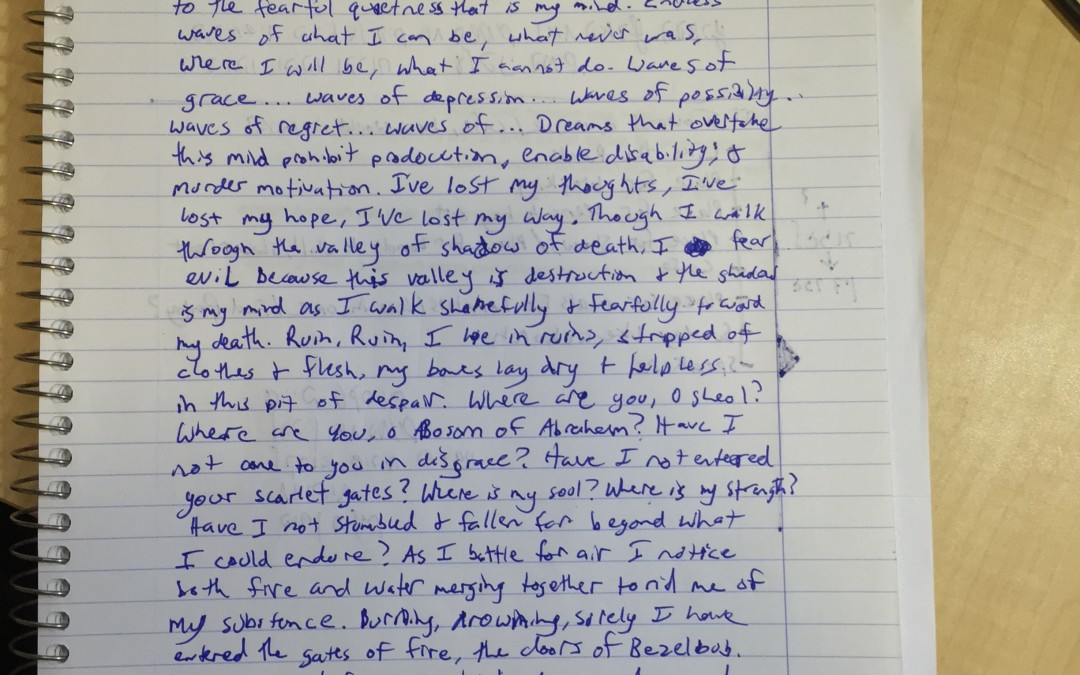 to the fearful quietness that is my mind. Endless
waves of what I can be, what never was,
where I will be, what I cannot do. Waves of
grace... waves of depression... waves of possibility..
waves of regret... waves of... Dreams that overtake
this mind prohibit prodocution, enable disability; &
murder motivation. I've lost my thoughts, I've
lost my hope, I've lost my way. Though I walk
through the valley of shadow of death, I fear
evil because this valley is destruction & the shadow
is my mind as I walk shamefully & fearfully toward
my death. Ruin, Ruin, I lye in ruins, stripped of
clothes & flesh, my bones lay dry & helpless
in this pit of despair. Where are you, O sheol?
Where are you, o Bosom of Abraham? Have I
not come to you in disgrace? Have I not entered
your scarlet gates? Where is my soul? Where is my strength?
Have I not stumbled & fallen far beyond what
I could endure? As I battle for air I notice
both fire and water merging together to rid me of
my substance. Burning, drowning, surely I have
entered the gates of fire, the doors of Bezelbub.